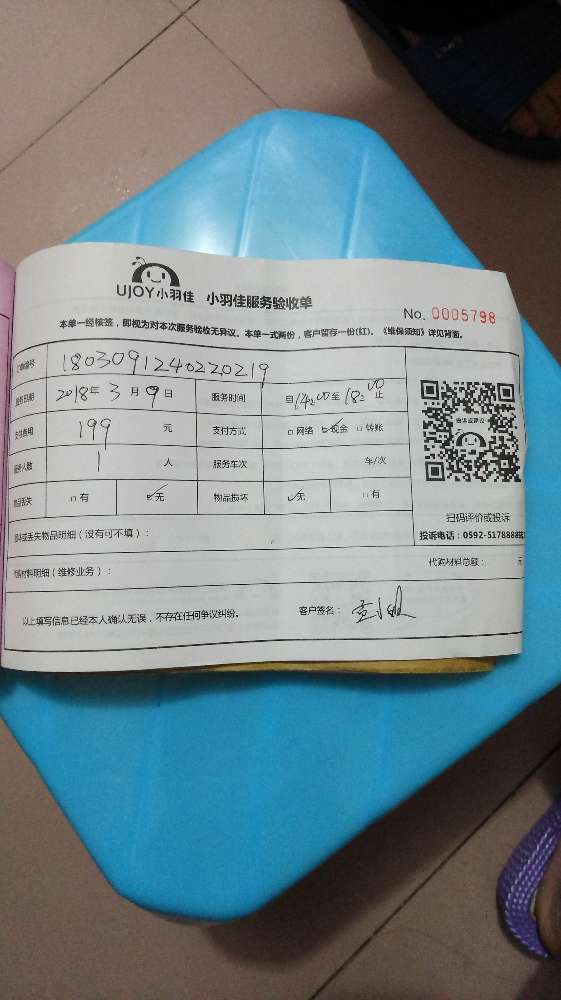 UJOY小羽佳 小羽佳服务验收单
No. 0005798
本单一经核签，即视为对本次服务验收无异议。本单一式两份，客户留存一份(红)。《维保须知》详见背面。
订单编号 1803091240220219
服务日期 2018年 3 月 9 日 服务时间 自14:00至18:00止
支付费用 199 元 支付方式 □网络 ☑现金 □转账
服务人数 1 人 服务车次 车/次
物品丢失 □有 ☑无 物品损坏 ☑无 □有
投诉或建议
扫码评价或投诉
投诉电话：0592-5178888转
损坏或丢失物品明细（没有可不填）：
代购材料明细（维修业务）： 代购材料总额： 元
以上填写信息已经本人确认无误，不存在任何争议纠纷。 客户签名：